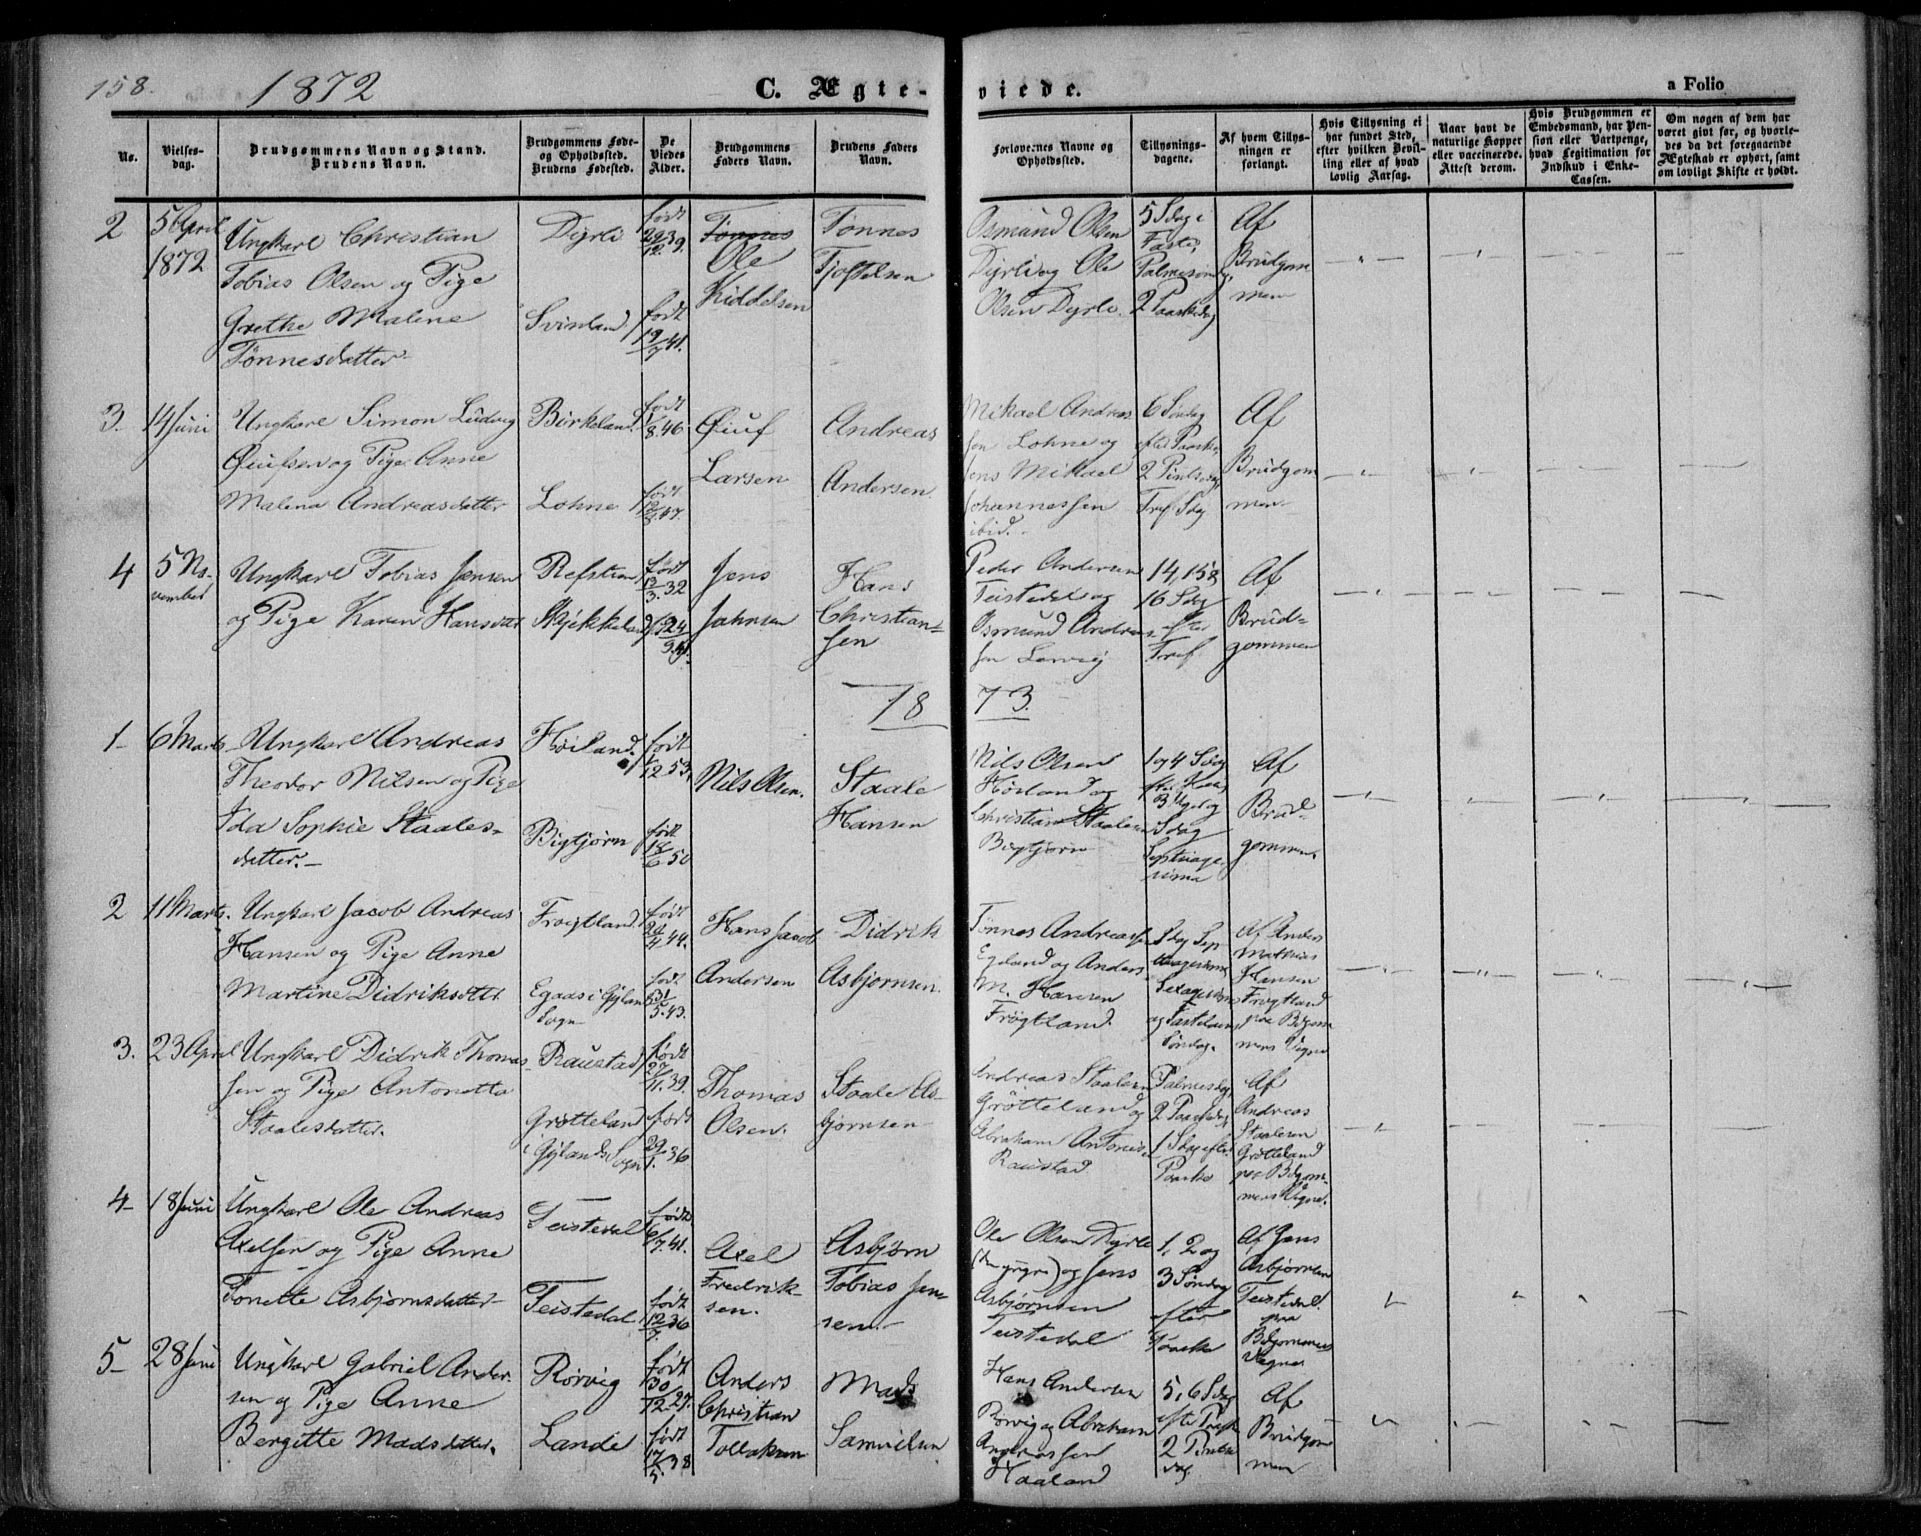 158.
1872
C. Ægte-
viede.
a Folio
No.
Vielses-
dag.
Brudgommens Navn og Stand.
Brudens Navn.
Brudgommens Føde-
og Opholdssted.
Brudens Fødested.
De
Viedes
Alder.
Brudgommens
Faders Navn.
Brudens Faders
Navn.
Forlovernes Navne og
Opholdssted.
Tillysnings-
dagene.
Af hvem Tillys-
ningen er
forlangt.
Hvis Tillysning ei
har fundet Sted,
efter hvilken Bevil-
ling eller af hvad
lovlig Aarsag.
Naar havt de
naturlige Kopper
eller vaccinerede.
Attest derom.
Hvis Brudgommen er
Embedsmand, har Pen-
sion eller Vartpenge,
hvad Legitimation for
Indskud i Enke-
Cassen.
Om nogen af dem har
været givt før, og hvorle-
des da det foregaaende
Ægteskab er ophørt, samt
om lovligt Skifte er holdt.
2
5 April
1872
Ungkarl Christian
Tobias Olsen og Pige
Grethe Malene
Tønnesdatter
Dyrli
Svinland
født
29/12 39.
født
19/7 41.
Tønnes
Ole
Kiddelsen
Tønnes
Tjostelsen
Osmund Olsen
Dyrli og Ole
Olsen Dyrli.
5 Sdag i
Faste,
Palmesøndag,
2 Paaskedag
Af
Brudgom
men
3.
14 Juni
Ungkarl Simon Ludvig
Øiufsen og Pige Anne
Malena Andreasdatter
Birkeland
Lohne
født
1/8. 46
født
47.
Øiuf
Larsen
Andreas
Andersen
Mikael Andreas
sen Lohne og
Jens Mikael
Johannessen
ibid.
6 Søndag
efter Paaske,
2 Pintsedag
Tref. Sdag
Af
Brudgom
men
4
5 No-
vember
Ungkarl Tobias Jensen
og Pige Karen Hansdatter
Refstien
født
13/3. 32
Jens
Jahnsen
Hans
Christian=
sen
Peder Andersen
Teistedal og
Osmund Andreas
sen Lervig
14, 15 &
16 Sdag
efter
Tref.
Af
Brud=
gommen
1873.
1
6 Marts
Ungkarl Andreas
Theodor Nilsen og Pige
Ida Sophie Staales-
datter.
Høiland
Bigtjørn
født
1/12 53.
født
18/6 50
Nils Olsen.
Staale
Hansen
Nils Olsen
Høiland og
Christian Staalesen
Bigtjørn
1 og 4 Sdag
efter Hell.
3 Konger og
Sdag
Septuage-
sima
Af
Brud-
gommen.
2
11 Marts.
Ungkarl Jacob Andreas
Hansen og Pige Anne
Martine Didriksdatter
Frøgtland
Egaas i Gylan
Sogn
født
4. 44.
født
31/5. 43.
Hans Jacob
Andersen
Didrik
Asbjørnsen
Tønnes Andreassen
Egeland og Anders
M. Hansen
Frøgtland.
Sdag Sep-
tuagesima
Sexagesima
og Fastelavns
Søndag.
Af Anders
Mathias
Hansen
Frøgtland
paa Bdgom
mens Vegne
3.
23 April
Ungkarl Didrik Thomas
sen og Pige Antonetta
Staalesdatter.
Raustad
Grøtteland
i Gylands Sogn
født
27/11. 39.
født
29/1. 36
Thomas
Olsen.
Staale As-
bjørnsen
Andreas Staalesen
Grøtteland og
Abraham Antonisen
Raustad
Palmesdag,
2 Paaskedag
1 Sdag efter
Paaske
Af
Andreas
Staalesen
Grøtteland
paa Bdgom-
mens Vegne.
4
18 Juni
Ungkarl Ole Andreas
Axelsen og Pige Anne
Tonette Asbjørnsdatter
Teistedal
Teistedal
født
6/7. 41.
født
12/7. 36
Axel
Fredrik-
sen.
Asbjørn
Tobias Jen-
sen.
Ole Olsen Dyrli
(den yngre) og Jens
Asbjørnsen
Teistedal
1, 2 og
3 Søndag
efter
Paaske
Af Jens
Asbjørnsen
Teistedal
paa
Bdgommens
Vegne
5
28 Juni
Ungkarl Gabriel Ander-
sen og Pige Anne
Bergitte Madsdatter.
Rørvig
Lande
født
30/12. 27.
født
17/5. 38
Anders
Christian
Tollaksen
Mads
Samuelsen
Hans Andersen
Rørvig og Abraham
Andreassen
Haaland
5, 6 Sdag
efter Paaske
2 Pintse
dag
Af
Brudgom
men